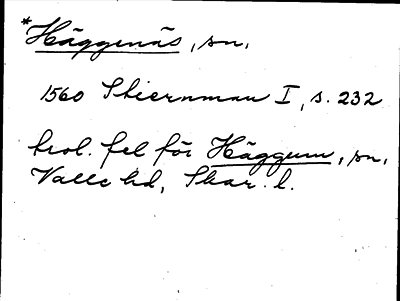 *Häggenäs, sn.
1560 Stiernman I, s. 232
trol. fel för Häggum, sn,
Valle hd, Skar. l.